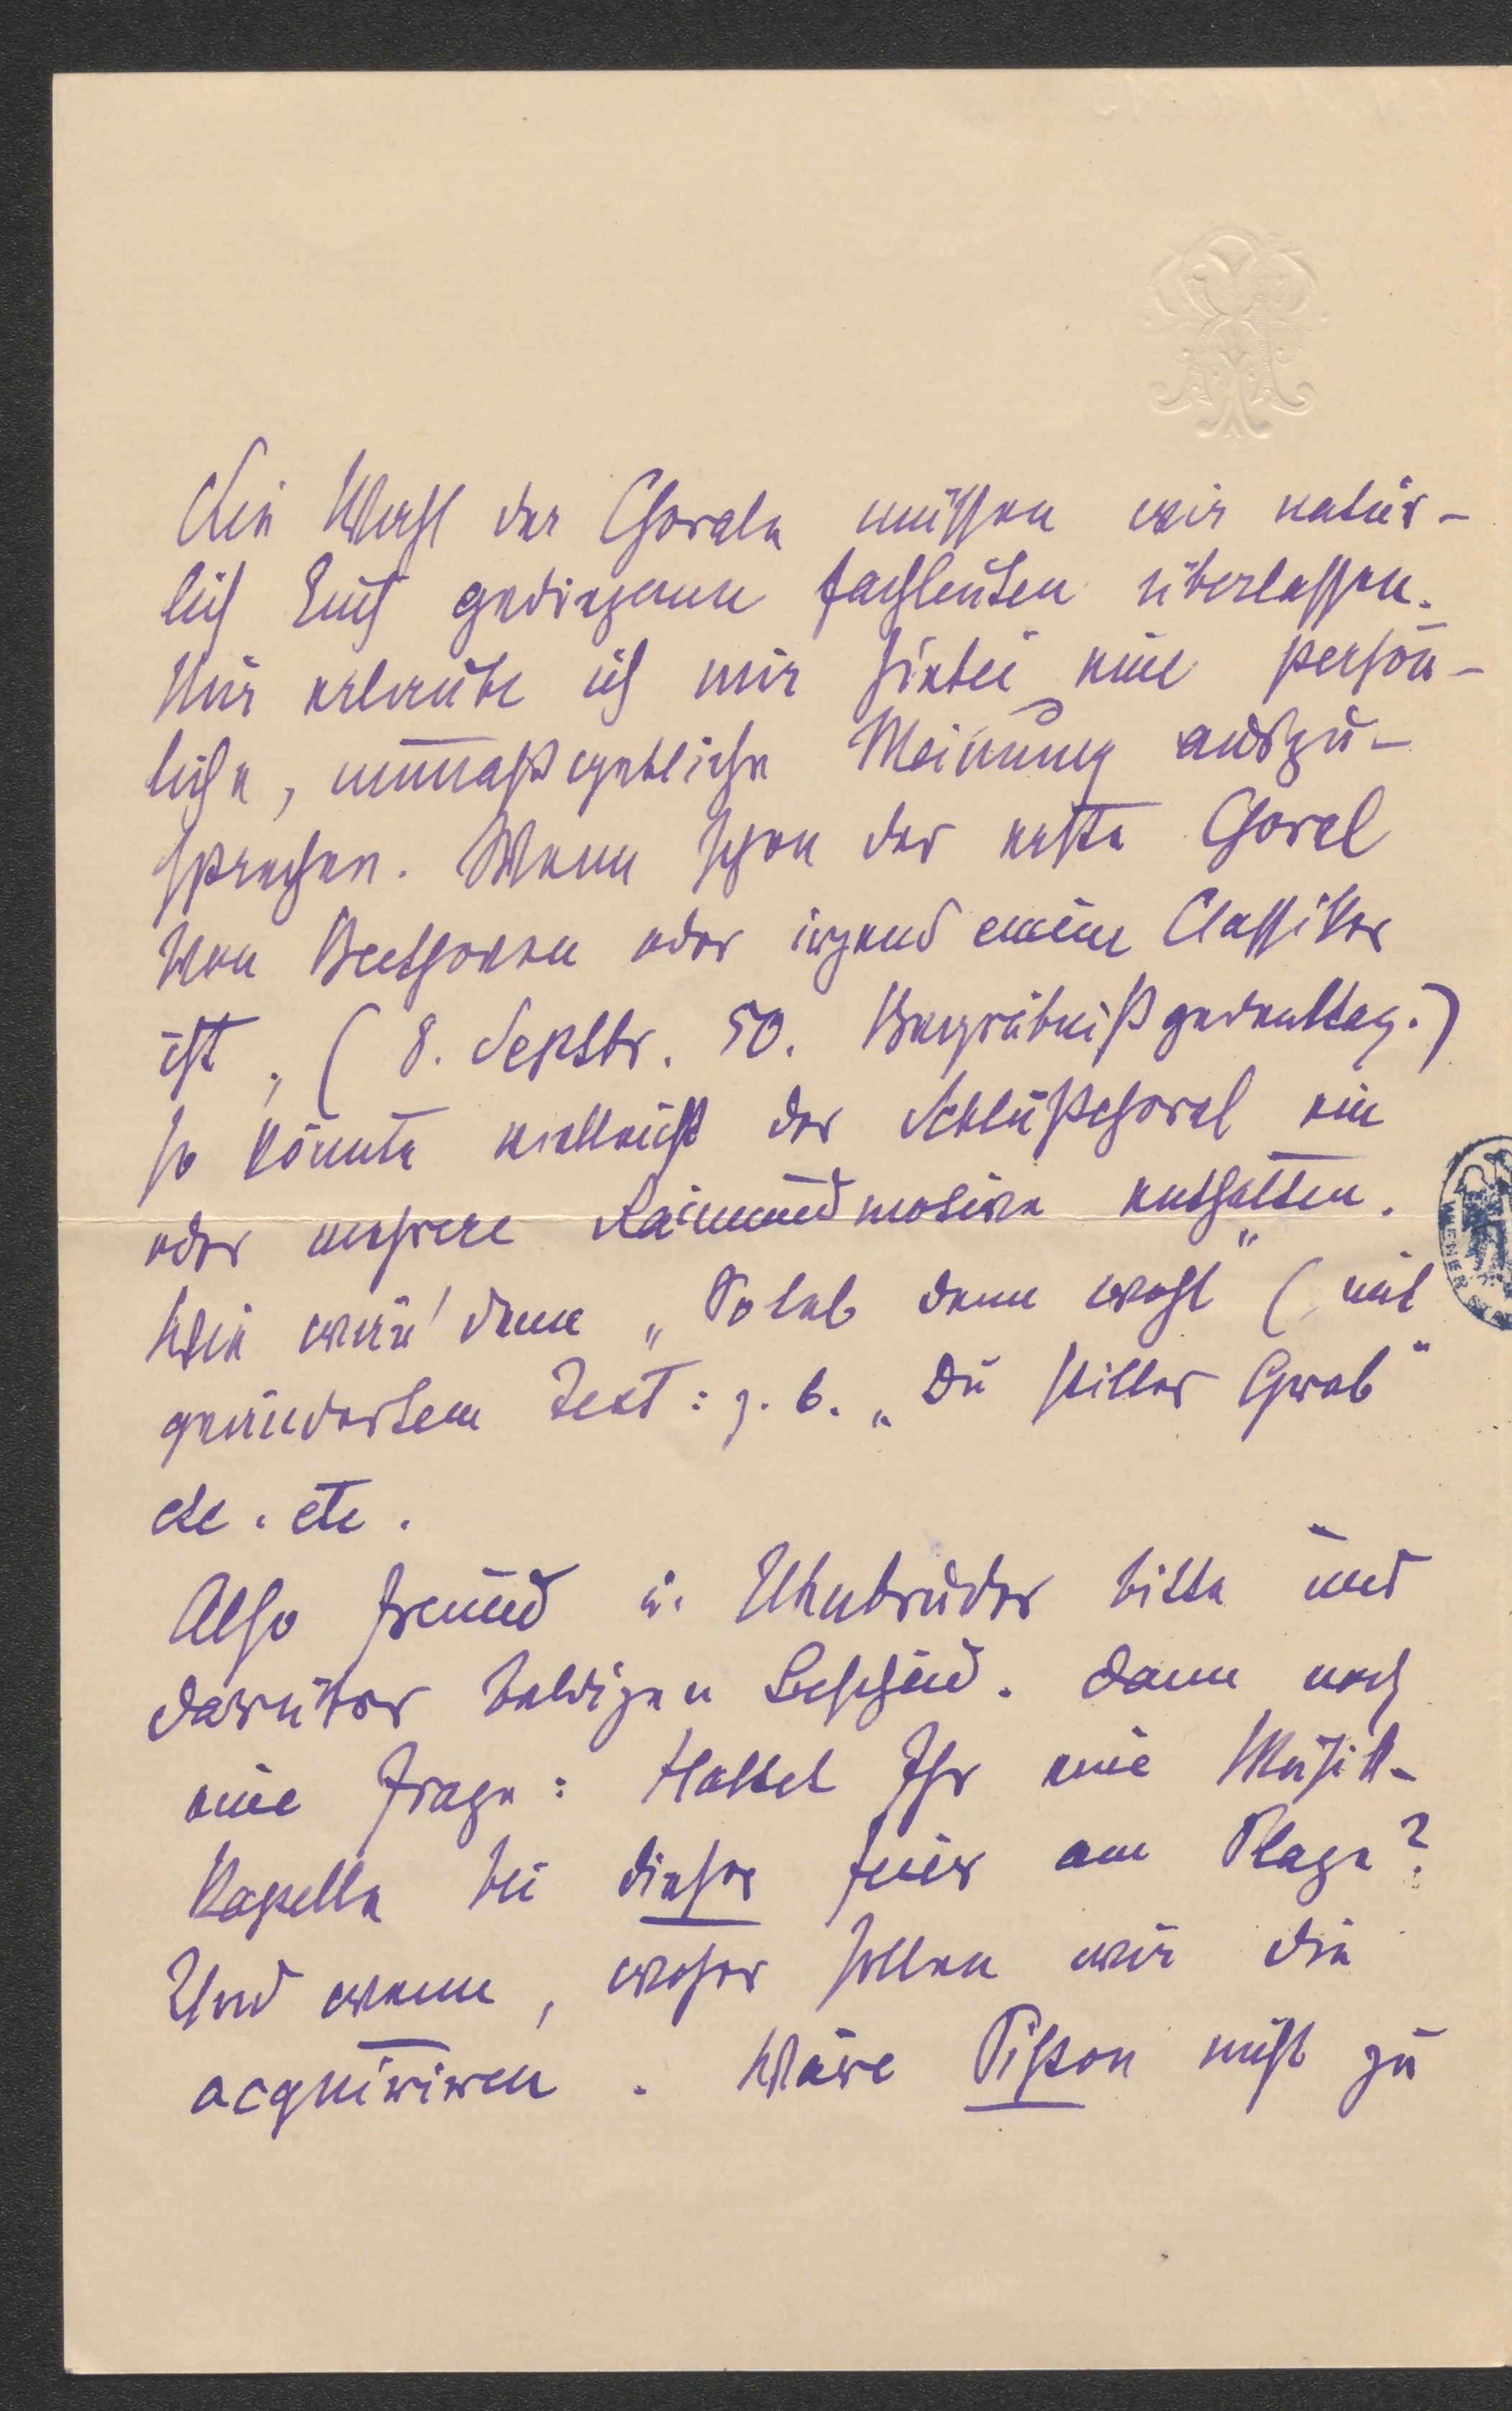 Die Wahl der Chorale müssen wir natür-
lich Euch gediegenen Fachleuten überlassen.
Nur erlaube ich mir hiebei eine persön-
liche, unmaßgebliche Meinung auszu-
sprechen. Wenn schon der erste Choral
von Beethoven oder irgend einem Classiker
ist, (8. Septbr. 50. Begräbnißgedenktag.)
so könnte vielleicht der Schlußchoral ein
oder mehrere Raimundmotive enthalten.
Wie wär' denn „So leb denn wohl" (mit
geändertem Text: z. b. „Du stilles Grab"
etc. etc.
Also Freund u. Uhubruder bitte um
darüber baldigen Bescheid. Dann noch
eine Frage: Haltet Ihr eine Musik-
Kapelle bei dieser Feier am Platze?
Und wenn, woher sollen wir die
acquiriren. Wäre nicht zu